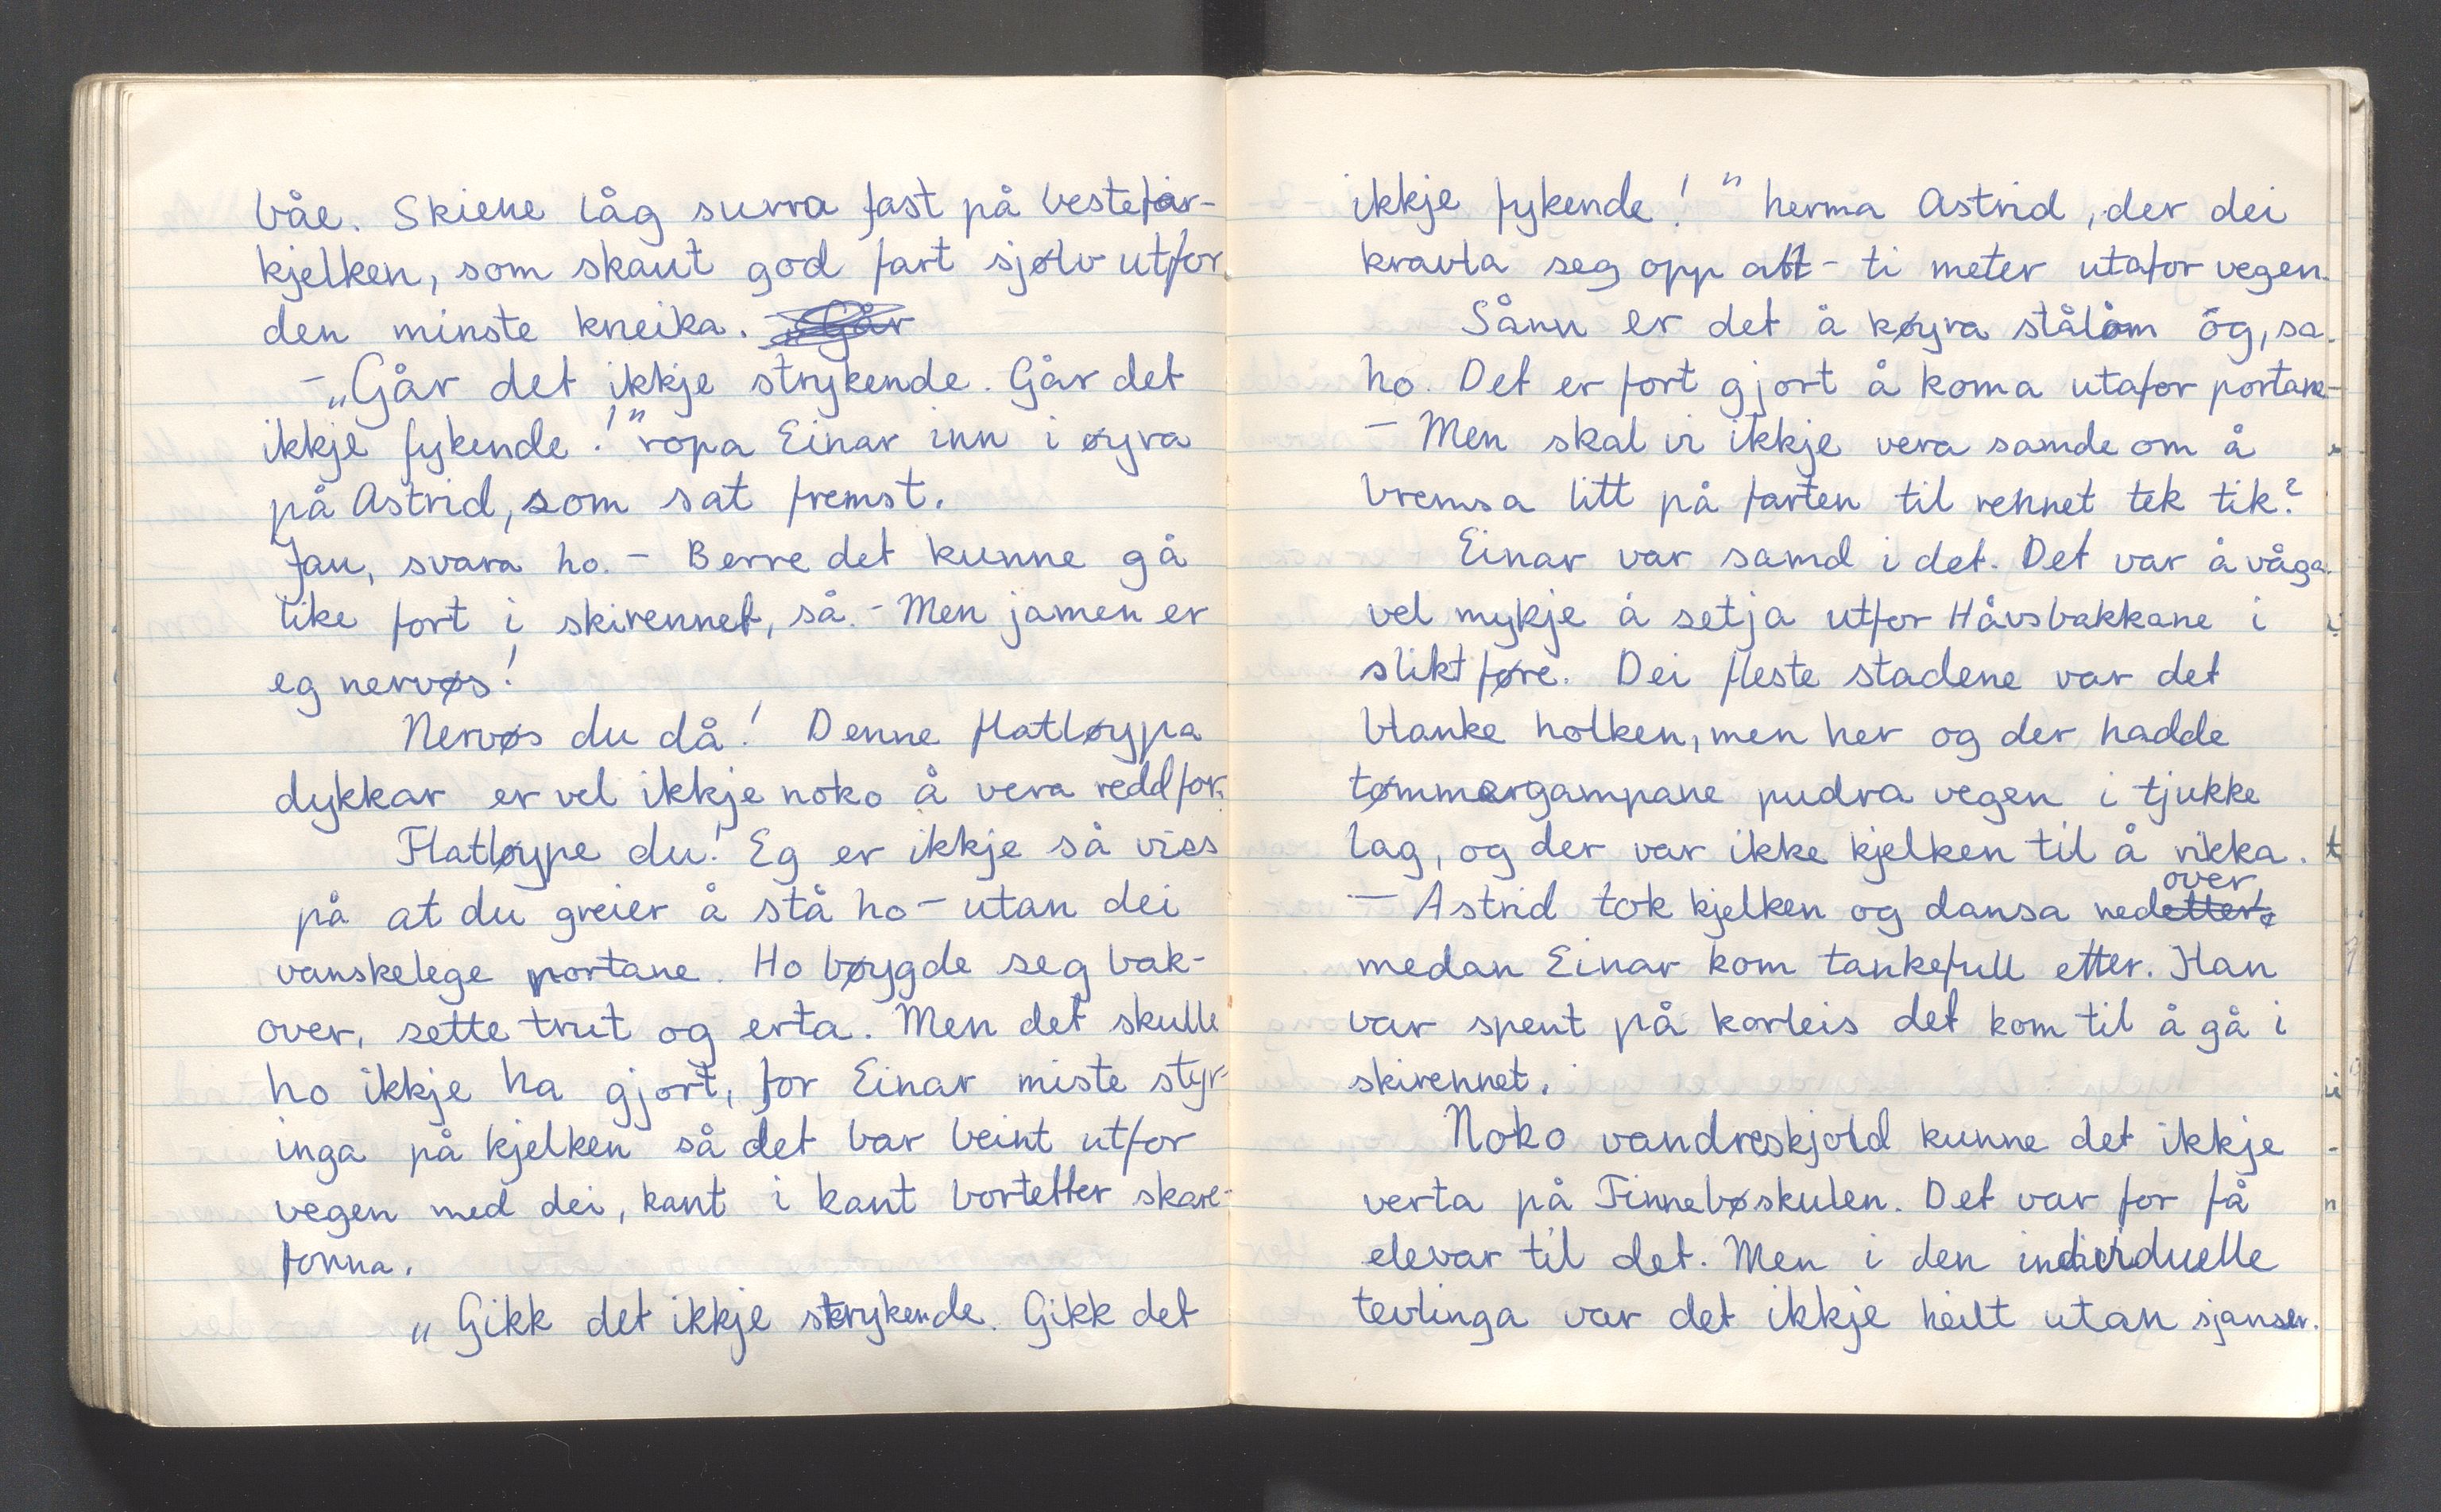 båe. Skiene låg surra fast på bestefar-
kjelken, som skaut god fart sjølv utfor
den minste kneika. „Går
- „Går det ikkje strykende. Går det
ikkje fykende!" ropa Einar inn i øyra
på Astrid, som sat fremst.
Jau, svara ho. - Berre det kunne gå
like fort i skirennet, så. - Men jamen er
eg nervøs!
Nervøs du då! Denne flatløypa
dykkar er vel ikkje noko å vera redd for.
Flatløype du! Eg er ikkje så viss
på at du greier å stå ho - utan dei
vanskelege portane. Ho bøygde seg bak-
over, sette trut og erta. Men det skulle
ho ikkje ha gjort, for Einar miste styr-
inga på kjelken så det bar beint utfor
vegen med dei, kant i kant bortetter skare-
fonna.
„Gikk det ikkje strykende. Gikk det
ikkje fykende!" herma Astrid, der dei
kravla seg opp att - ti meter utafor vegen.
Sånn er det å køyra slålåm óg, sa
ho. Det er fort gjort å koma utafor portane
- Men skal vi ikkje vera samde om å
bremsa litt på farten til rennet tek tik?
Einar var samd i det. Det var å våga
vel mykje å setja utfor Håvsbakkane i
slikt føre. Dei fleste stadene var det
blanke holken, men her og der hadde
tømmergampane pudra vegen i tjukke
lag, og der var ikke kjelken til å rikka.
over
- Astrid tok kjelken og dansa nedetter,
medan Einar kom tankefull etter. Han
var spent på korleis det kom til å gå i
skirennet.
Noko vandreskjold kunne det ikkje
verta på Finnebøskulen. Det var for få
elevar til det. Men i den individuelle
tevlinga var det ikkje heilt utan sjanser.